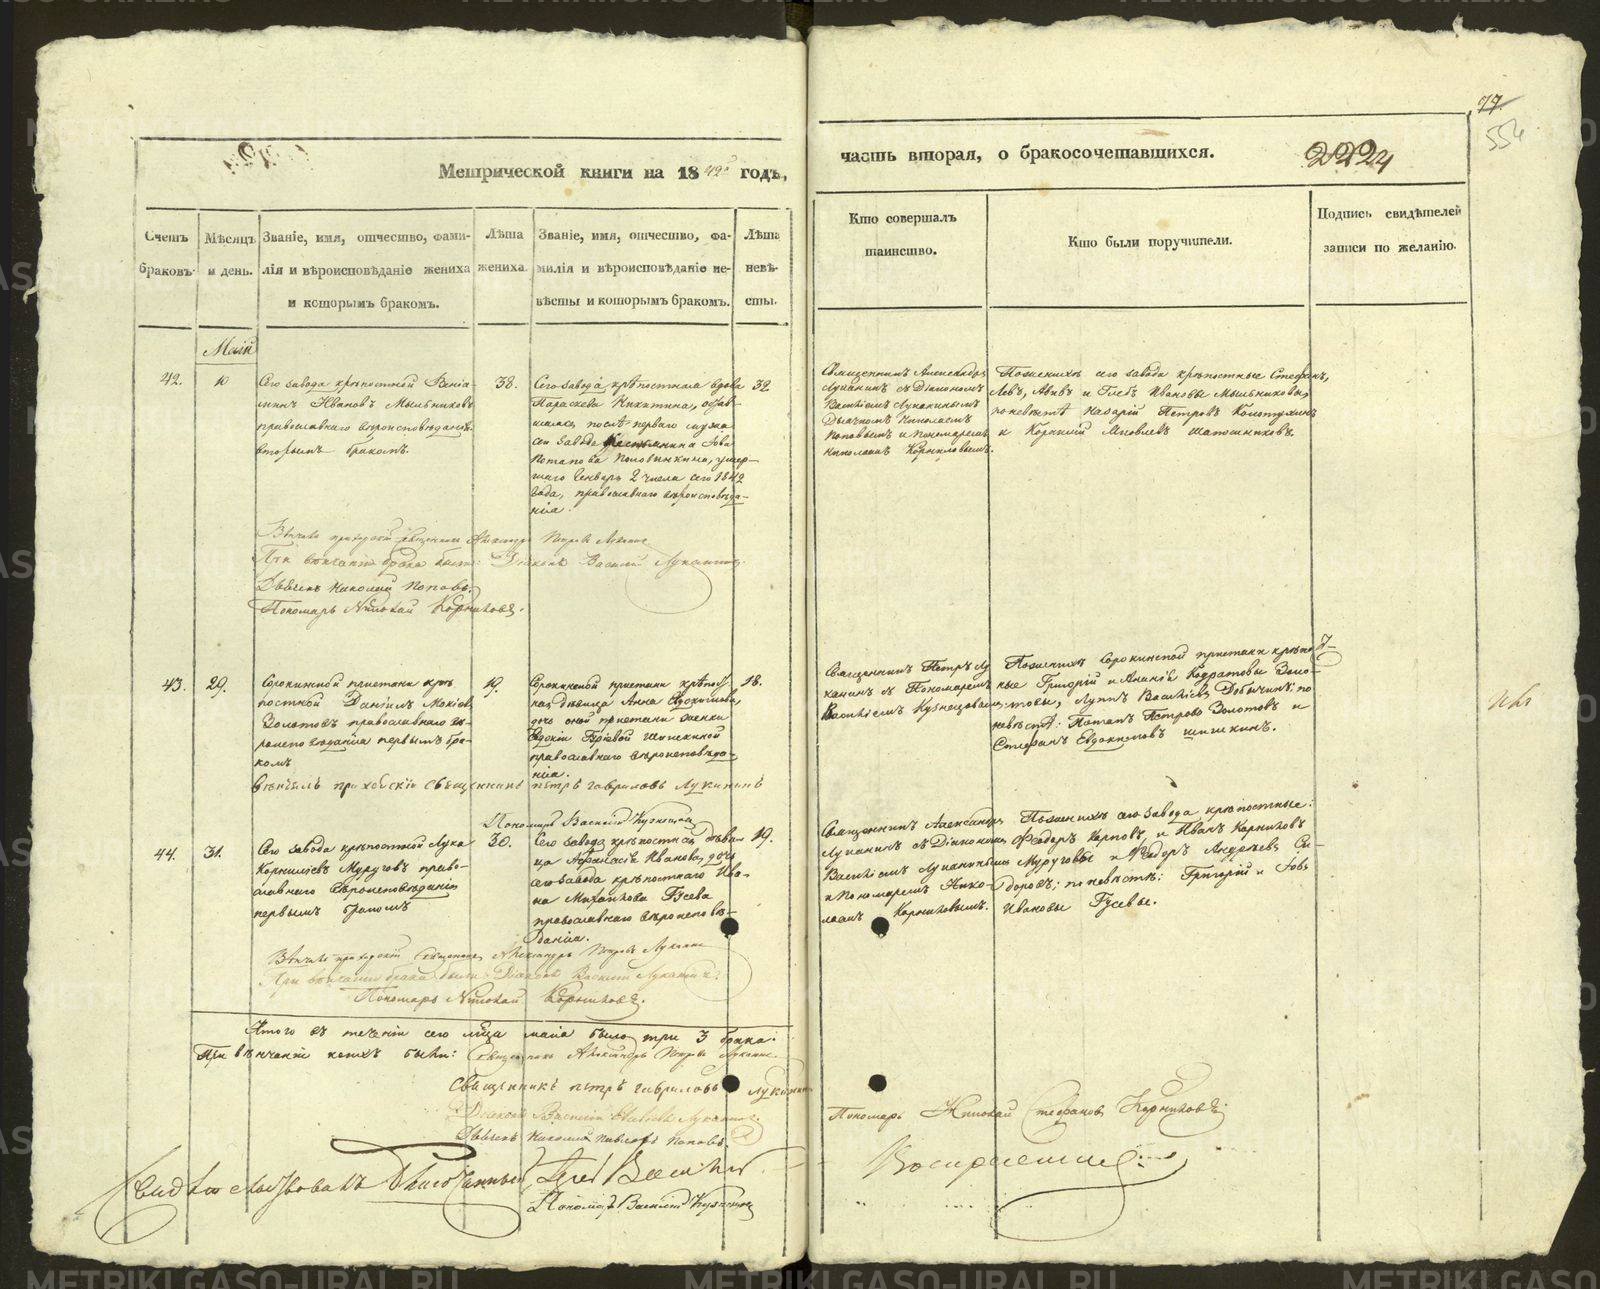 77.
554
Метрической книги на 1842 годъ,
часть вторая, о бракосочетавшихся.
2224
Счетъ браковъ.
Мѣсяцъ и день.
Званіе, имя, отчество, фамилія и вѣроисповѣданіе жениха и которымъ бракомъ.
Лѣта жениха.
Званіе, имя, отчество, фамилія и вѣроисповѣданіе невѣсты и которымъ бракомъ.
Лѣта невѣсты.
Кто совершалъ таинство.
Кто были поручители.
Подпись свидѣтелей записи по желанію.
Маій
42.
10
Сего завода крѣпостной Веніа-
минъ Ивановъ Мыльниковъ
православнаго вѣроисповѣданія
вторымъ бракомъ.
38.
Сего завода крѣпостная вдова
Параскева Никитина, остав-
шаяся послѣ перваго мужа
сего завода Іова
Потапова Половинкина, умер-
шаго Генваря 2 числа сего 1842
года, православнаго вѣроисповѣда-
нія.
32
Священникъ Александръ
Луканинъ съ Діакономъ
Василіемъ Луканинымъ
Дьячкомъ Николаемъ
Поповымъ и Пономаремъ
Николаемъ Корниловымъ.
По женихѣ сего завода крѣпостные Стефанъ,
Левъ, Авивъ и Глебъ Ивановы Мыльниковы,
по невѣстѣ Назарій Петровъ Колотухинъ
и Корнилій Яковлевъ Шапошниковъ.
Вѣнчалъ приходскій священникъ Александръ Петровъ Луканинъ
При вѣнчаніи брака были: Діаконъ Василій Луканинъ.
Дьячекъ Николай Поповъ.
Пономарь Николай
43.
29.
Сорокинской пристани крѣ-
постной Даніилъ Мокіевъ
Золотовъ православнаго вѣ-
роисповѣданія первымъ бра-
комъ
19.
Сорокинской пристани крѣпост-
ная дѣвица Анна Евдокимова,
дочь оной пристани женки
Евдокіи Шишкиной
православнаго вѣроисповѣда-
нія.
18.
Священникъ Петръ Лу-
канинъ съ Пономаремъ
Василіемъ Кузнецовымъ
По женихѣ Сорокинской пристани крѣпост-
ные Григорій и Ананій Кодратовы Золо-
товы, Луппъ Василіевъ Добычинъ; по
невѣстѣ: Потапъ Петровъ Золотовъ и
Стефанъ Евдокимовъ Шишкинъ.
вѣнчалъ приходскій священникъ петръ гавриловъ Лукининъ
Пономарь Василій Кузнецовъ
44.
31.
Сего завода крѣпостной Лука
Корниліевъ Муруговъ право-
славнаго вѣроисповѣданія
первымъ бракомъ
30.
Сего завода крѣпостная дѣви-
ца Афанасія Иванова, дочь
сего завода крѣпостнаго Ива-
на Михайлова Гусева
православнаго вѣроисповѣ-
данія.
19.
Священникъ Александръ
Луканинъ съ Діакономъ
Василіемъ Луканинымъ
и Пономаремъ Нико-
лаемъ Корниловымъ.
По женихѣ сего завода крѣпостные:
Федоръ Карповъ, и Иванъ Корниловъ
Муруговы и Федоръ Андреевъ Си-
доровъ; по невѣстѣ: Григорій и Іовъ
Ивановы Гусевы.
Вѣнчалъ приходскій Священникъ Александръ Петровъ Луканинъ
При вѣнчаніи брака были Діаконъ Василій Луканинъ.
Пономарь Николай
Итого въ теченіи сего мѣсяца маія было три 3 брака.
При вѣнчаніи коихъ были: Священникъ Александръ Петровъ Луканинъ
Священникъ петръ гавриловъ лукининъ
Діаконъ Василій Луканинъ.
Дьячекъ Николай Павловъ Поповъ.
Пономарь Николай Стефановъ
Свидѣтельствовалъ Благочинный Іерей Василій
Воскресенскій
Пономарь Василій Кузнецовъ
METRIKI.GASO-URAL.RU